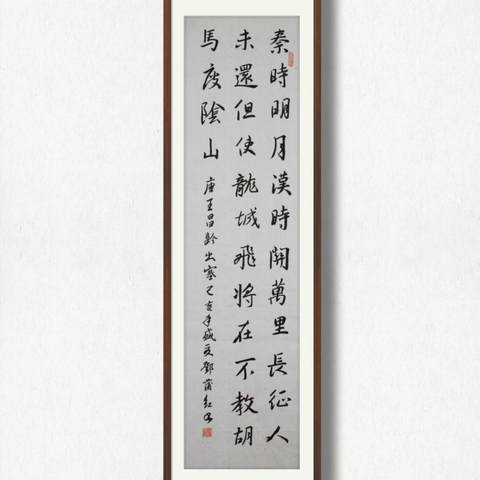 秦時明月漢時關萬里長征人
未還但使龍城飛將在不教胡
馬度陰山 唐王昌齡出塞己亥年盛夏鄧蒲紅書